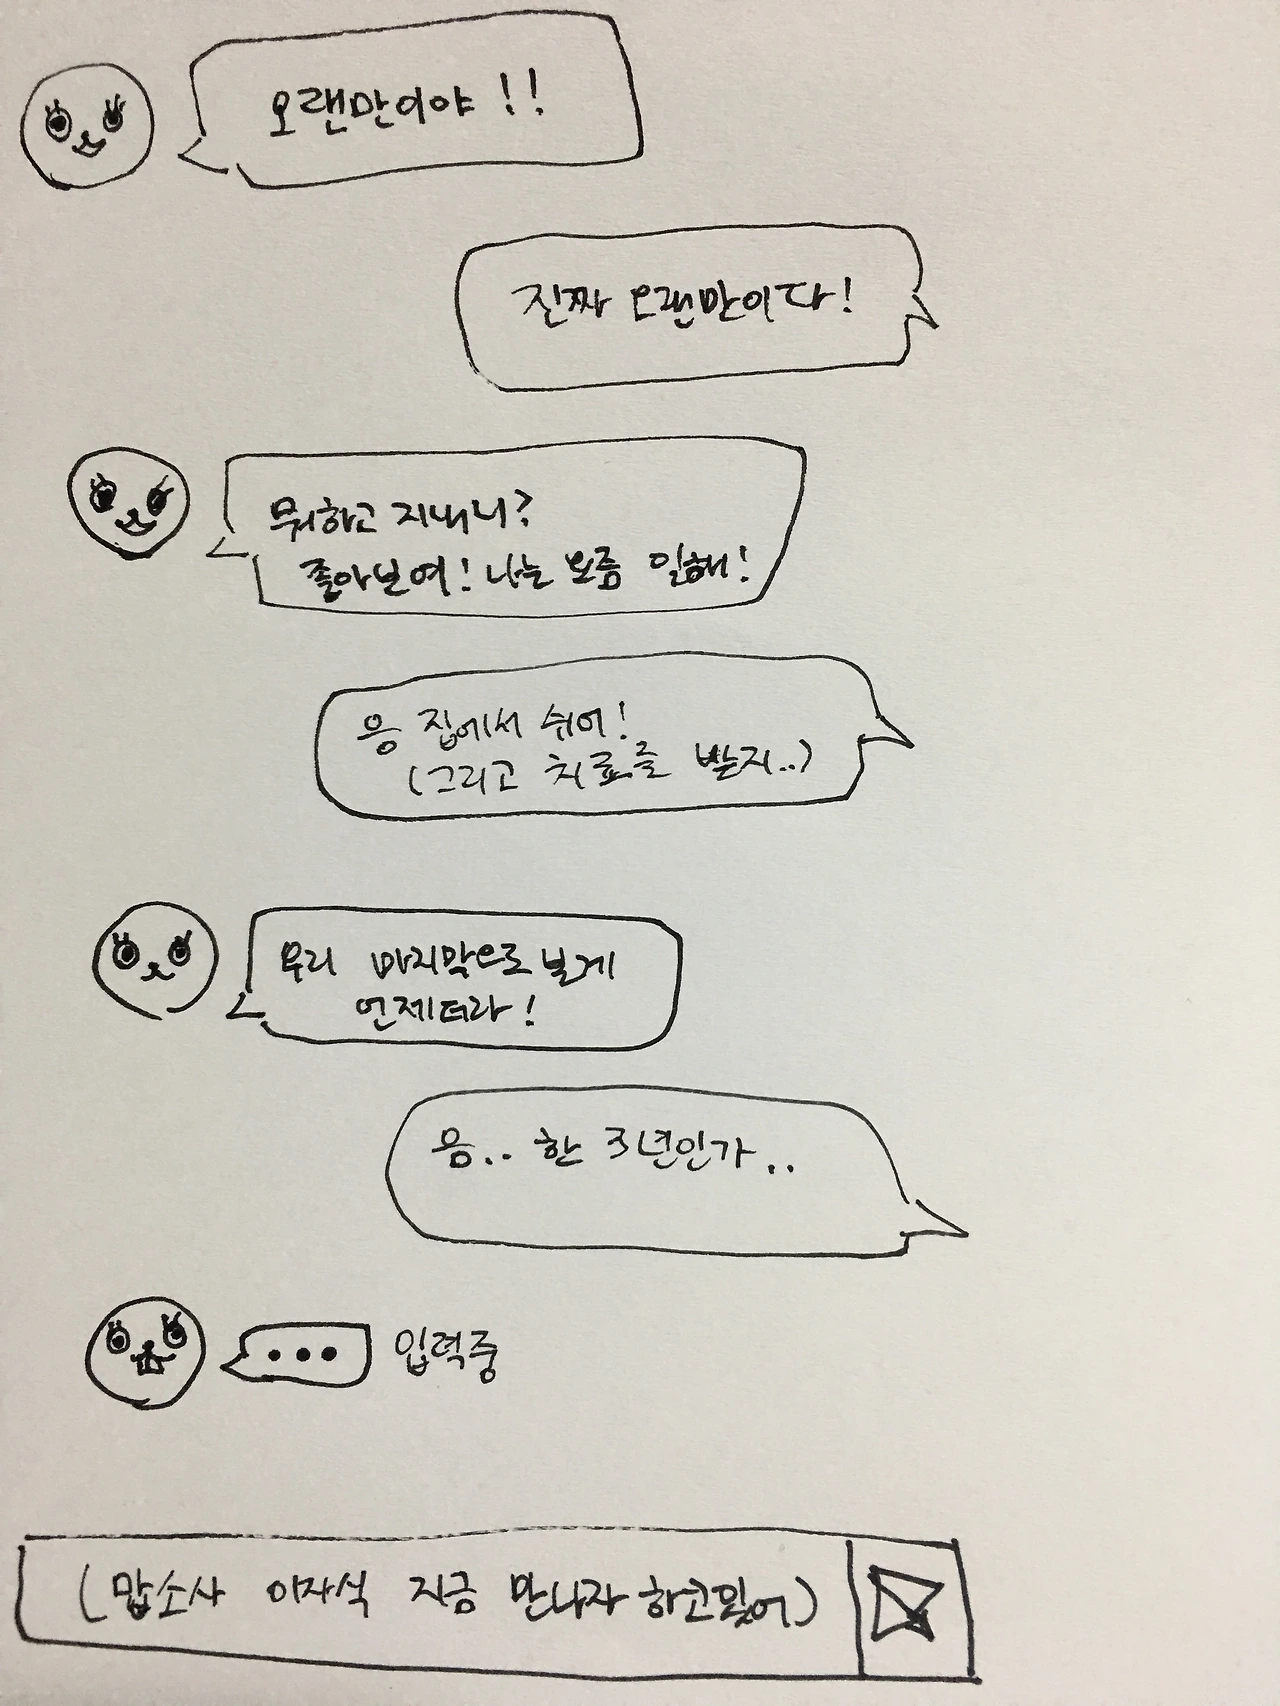 오랜만이야!!
진짜 오랜만이다!
뭐하고 지내니?
좋아보여! 나는 요즘 일해!
응 집에서 쉬어!
(그리고 치료를 받지..)
우리 마지막으로 본게
언제더라!
음.. 한 3년인가..
입력중
(맙소사 이자식 지금 만나자 하고있어)